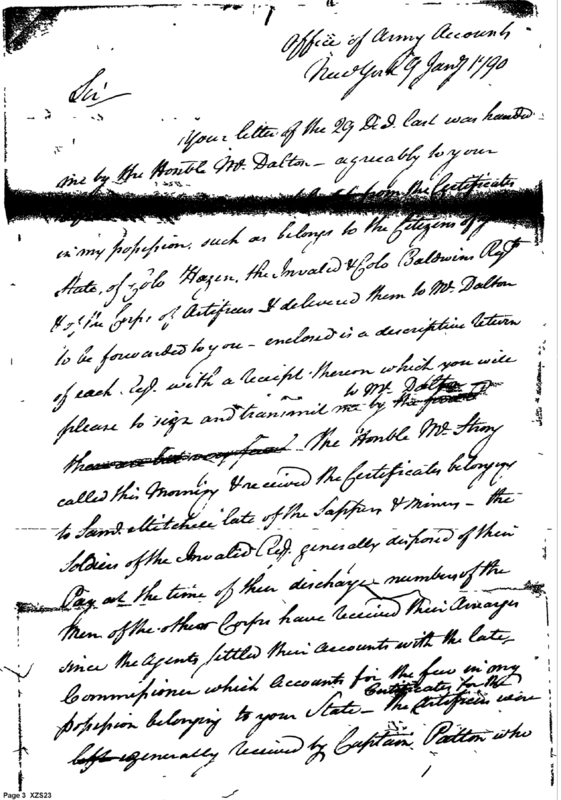 Office of Army Accounts
New York 9 Jany 1790
Sir
Your letter of the 29 Decd. last was handed
me by the Honble Mr. Dalton – agreeably to your
from the Certificates
in my possession, such as belongs to the Citizens of
State, of Colo Hazen, the Invalid & Colo Baldwins Regts
& of the Corps of Artificers & delivered them to Mr Dalton
to be forwarded to you – enclosed is a descriptive return
of each Regt. with a receipt thereon which you will
to Mr. Dalton
please to sign and transmit me by the
there are but very few The Honble Mr. Strong
called this Morning & received the Certificates belonging
to Saml. Mitchell late of the Sappers & Miners – the
Soldiers of the Invalid Regt. generally disposed of their
Pay at the time of their discharge numbers of the
Men of the other Corps have received their Arrearages
since the Agents settled their Accounts with the late
Commissioner which accounts for the few in my
Certificates for the
possession belonging to your State – the Artificers were
generally received by Captain Patton who
Page 3 XZS23